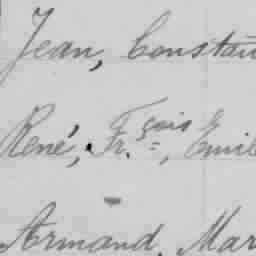 Jean, Constan
René, Fr.çois, Emile
Armand, Mar